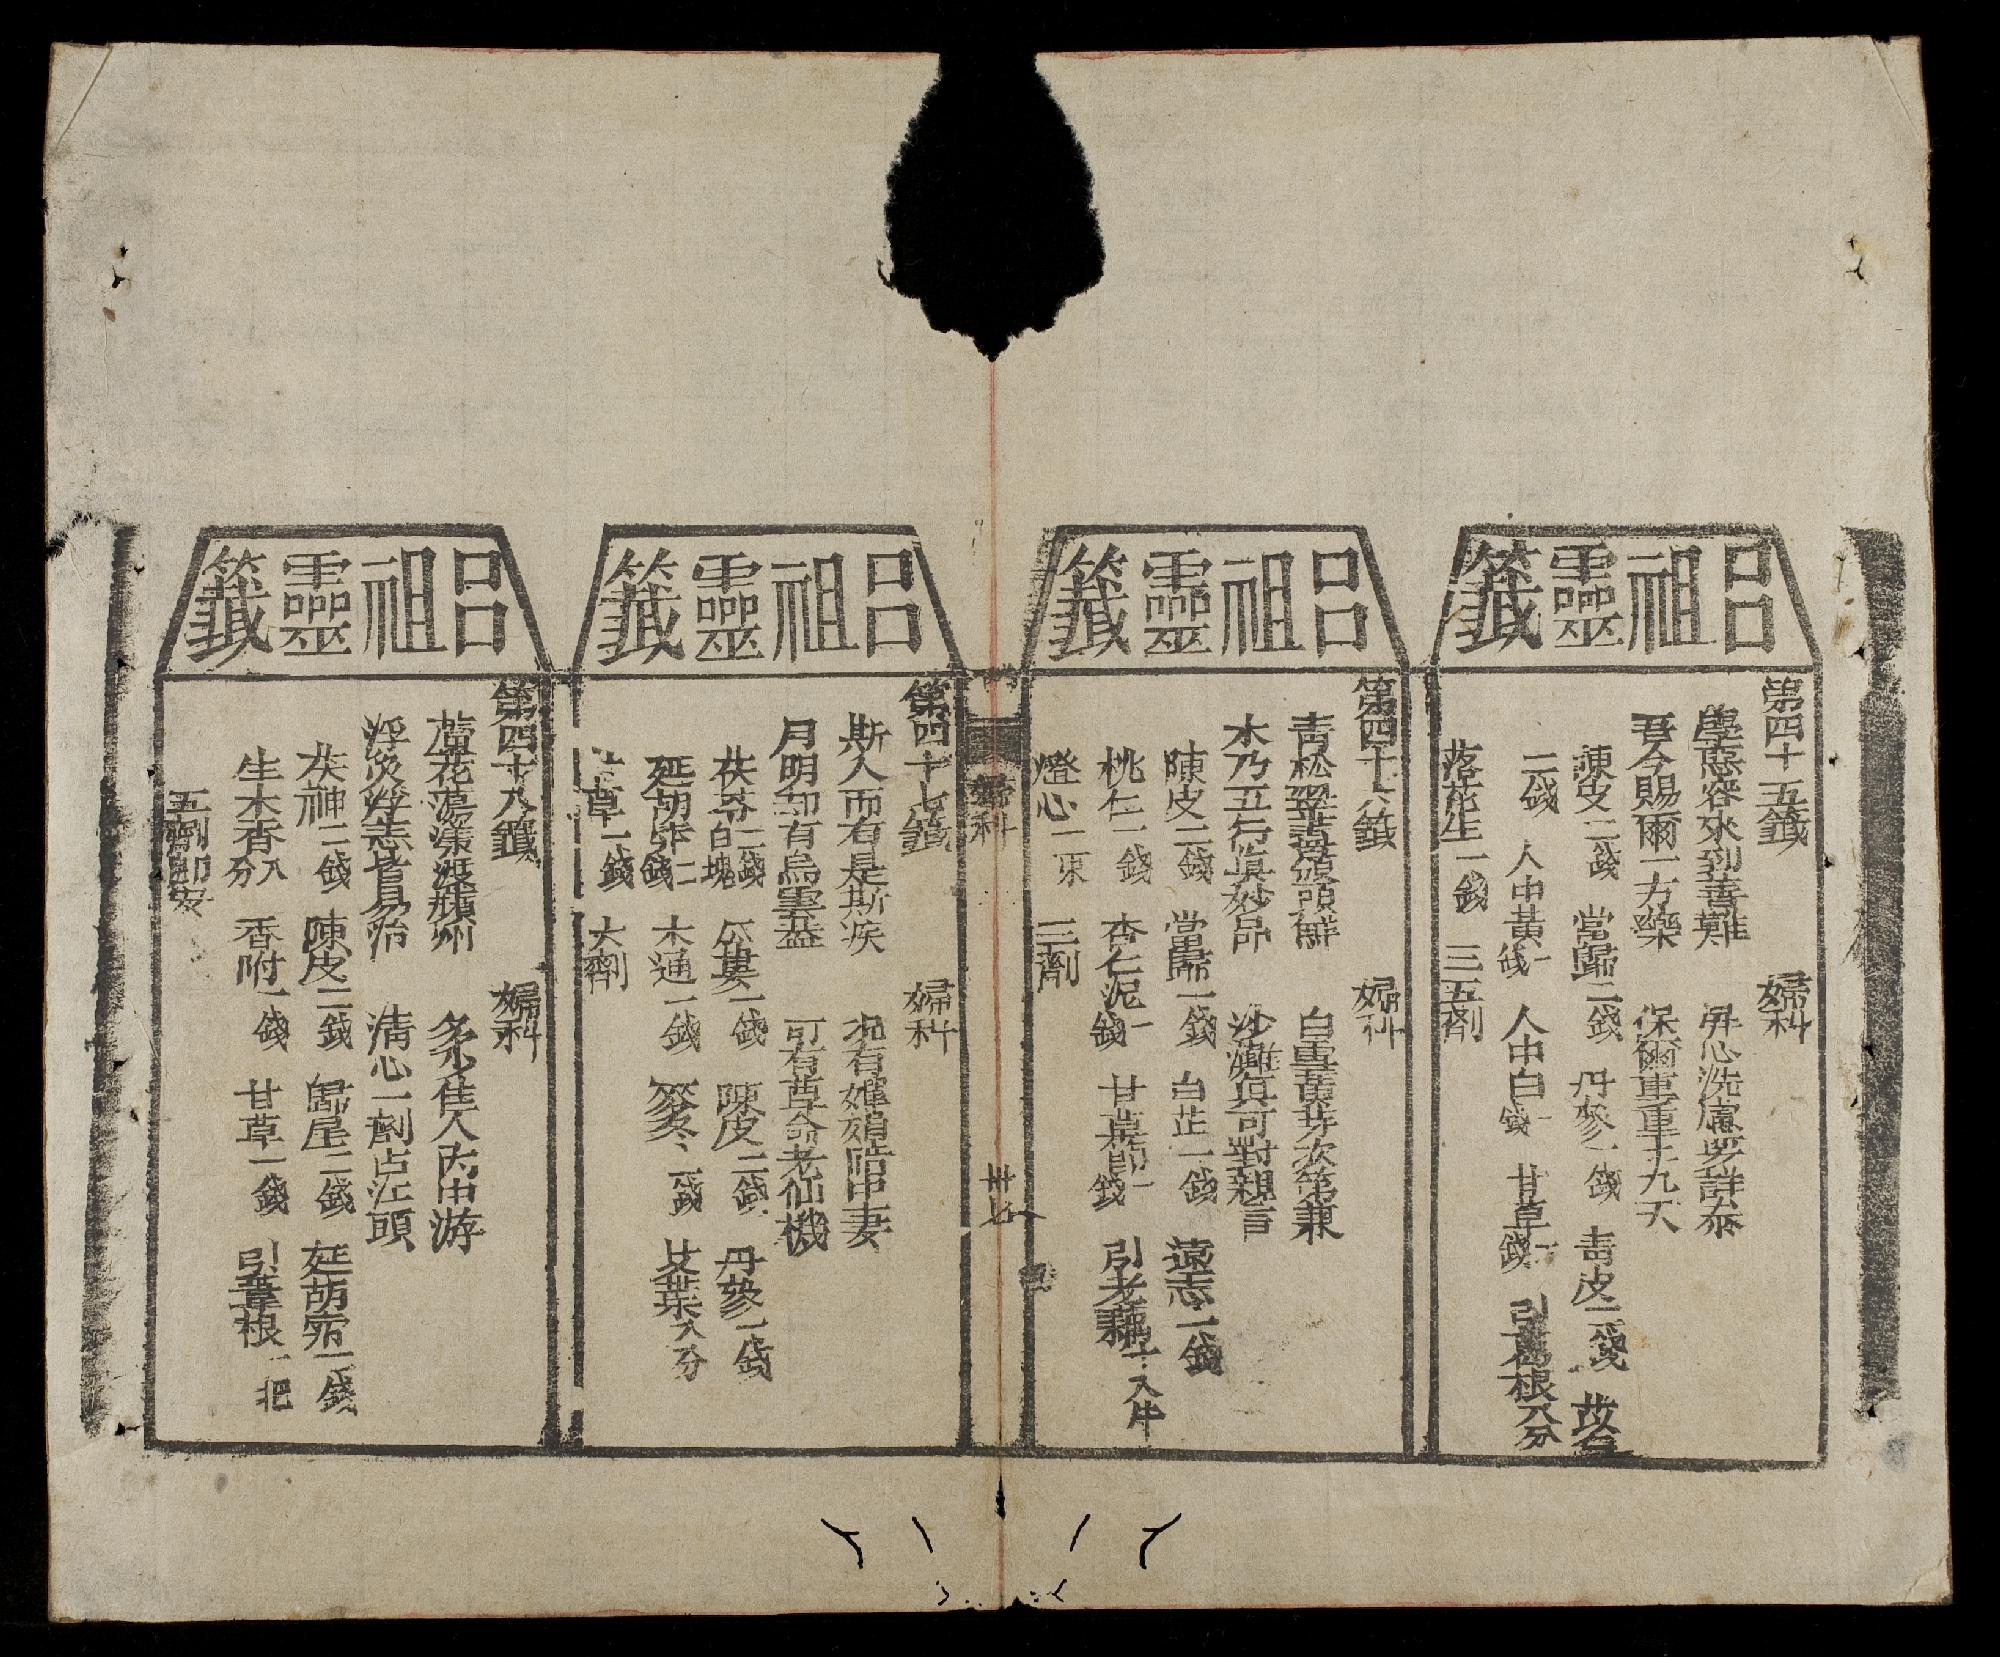 呂祖靈籤
第四十五籤 婦科
學惡容易到善難 屏心洗慮要詳泰
吾今賜爾一方藥 保爾重重上九天
陳皮二錢 當歸二錢 丹參一錢 青皮二錢
二錢 人中黃一錢 人中白一錢 甘草一錢 引葛根八分
落花生一錢 三五劑
呂祖靈籤
第四十六籤 婦科
青松翠 頭鮮 白雪黃芽次第兼
水乃五行真妙品 沙灘俱可對親言
陳皮二錢 當歸一錢 白芷一錢 遠志一錢
桃仁一錢 杏仁泥一錢 甘草節一錢 引老薑
燈心一束 三劑
婦科
卅七
呂祖靈籤
第四十七籤 婦科
斯人而有是斯疾 況有 陷中妻
月明却有烏雲蓋 可有草命老仙機
茯苓白塊一錢 瓜蔞一錢 陳皮二錢 丹參一錢
延胡 二錢 木通一錢 麥冬一錢 艾葉八分
甘草一錢 大劑
呂祖靈籤
第四十八籤 婦科
蘆花蕩漾 州 多少佳人內中游
浮災浮志皆易治 清心一劑占江頭
茯神二錢 陳皮二錢 歸尾二錢 延胡索一錢
生木香八分 香附一錢 甘草一錢 引葦根一把
五劑即安